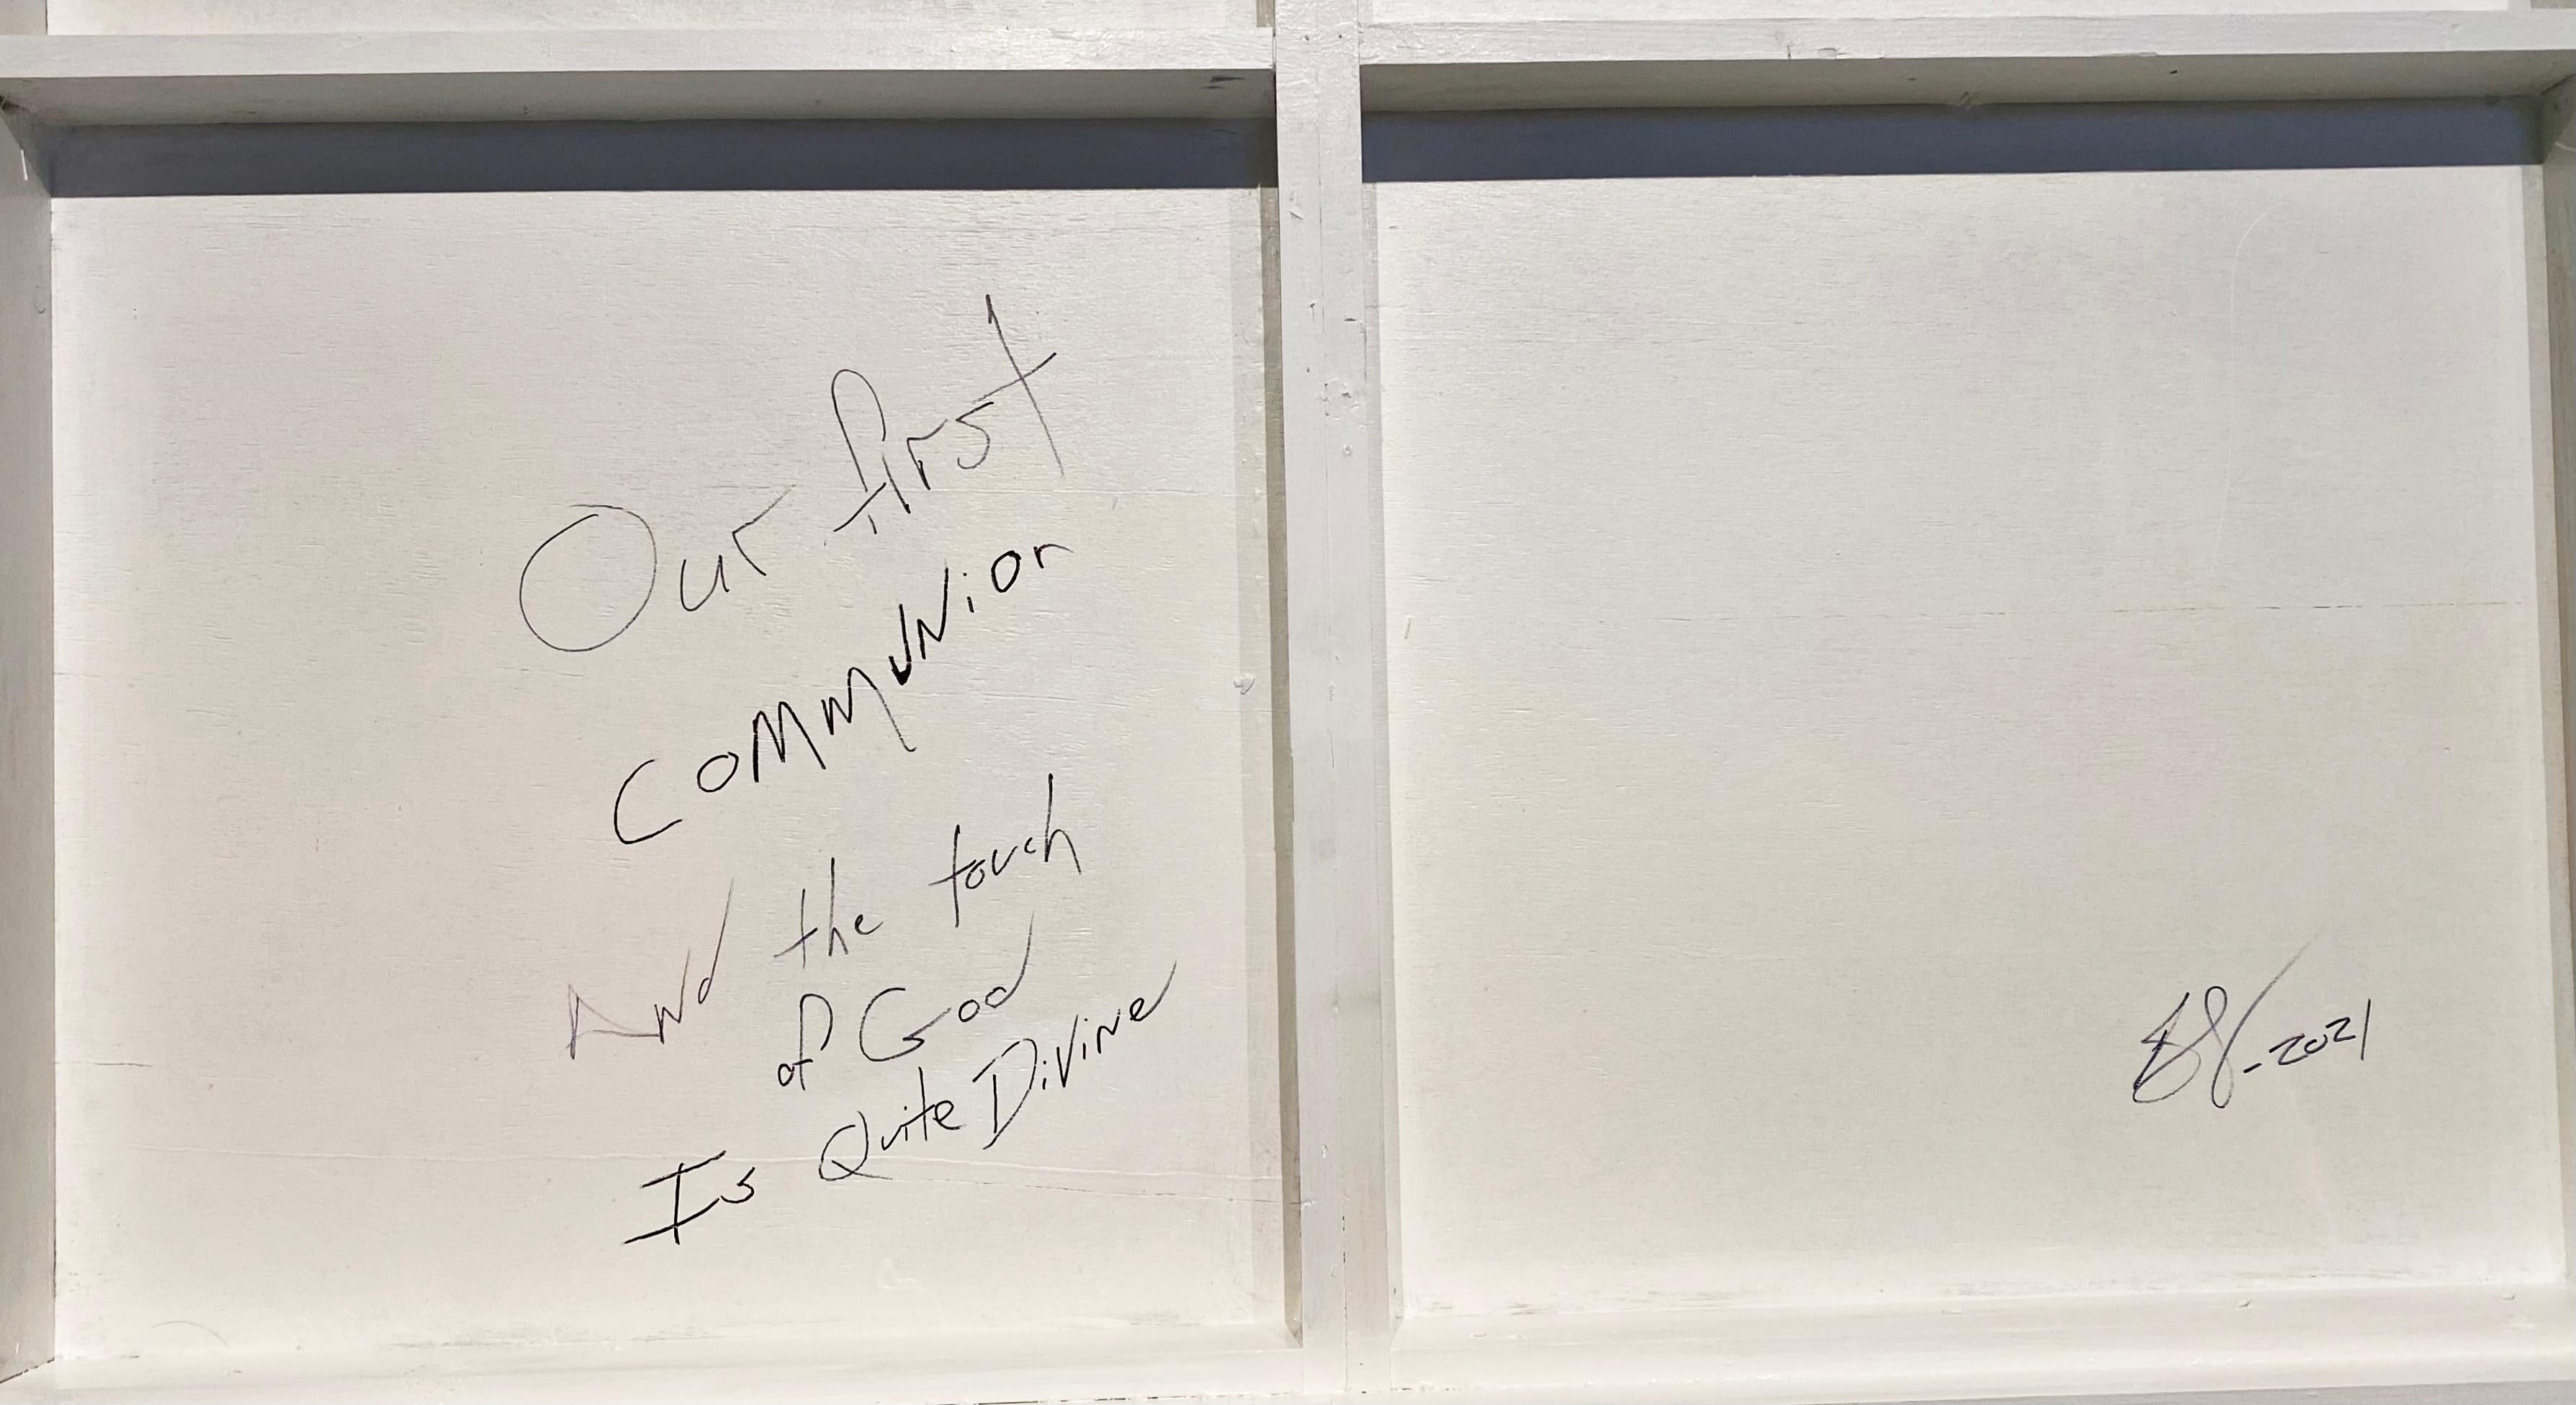 Our first
CommuNion
ANd the touch
of God
Is Quite DiviNe
-2021